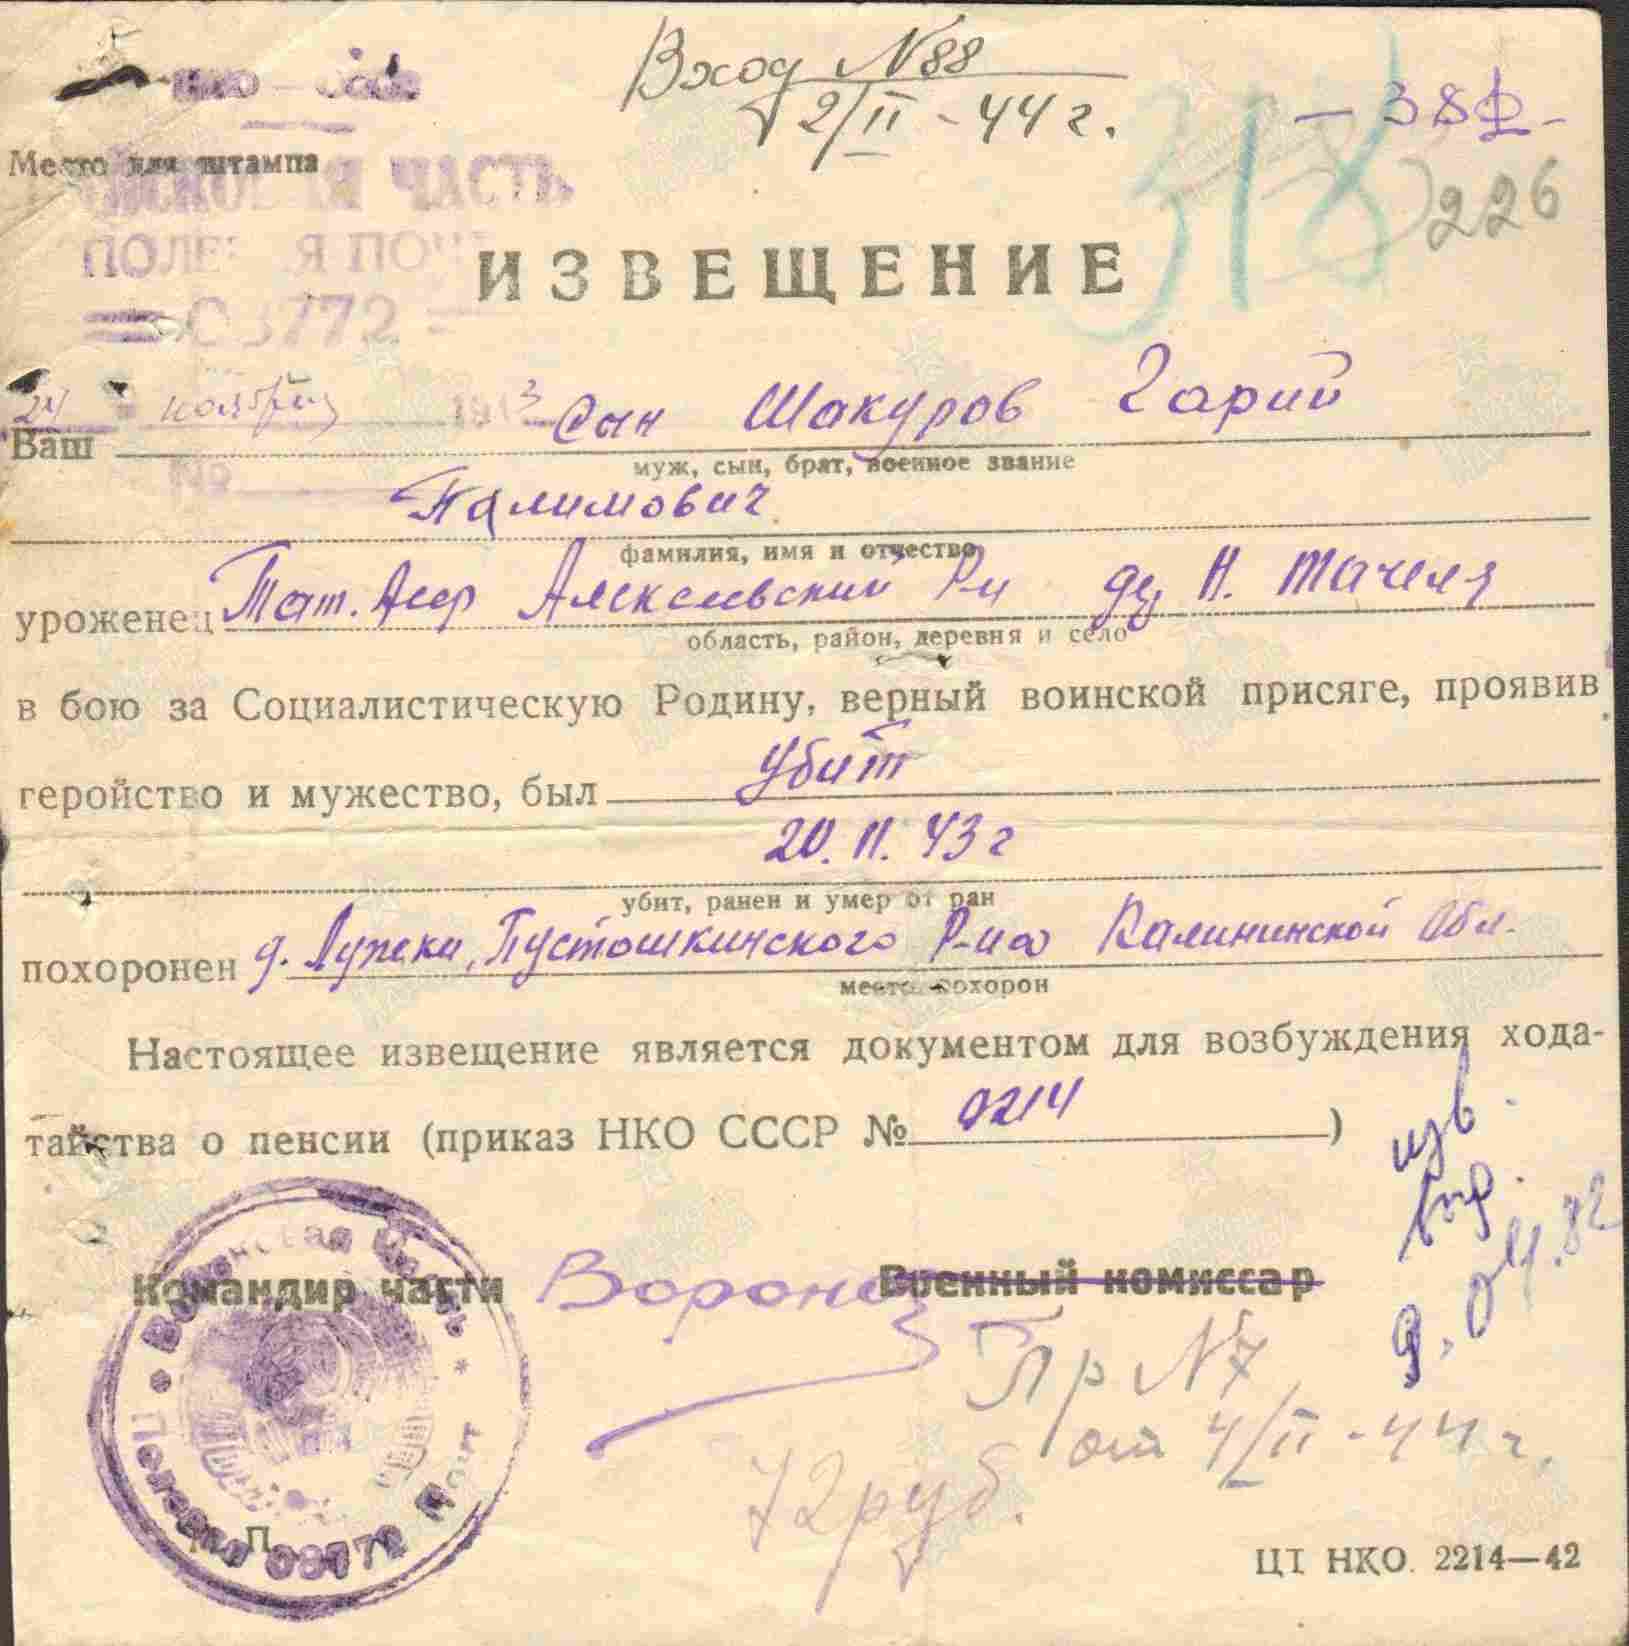 Вход №88
2/II-44 г.
318
226
НКО
Место для штампа
ЧАСТЬ
ИЗВЕЩЕНИЕ
24 ноября 1943
Ваш сын Шакуров Гарий
муж, сын, брат, военное звание
Халимович
фамилия, имя и отчество
уроженец Тат. Асср Алексеевский Р-н Н.
область, район, деревня и село
в бою за Социалистическую Родину, верный воинской присяге, проявив
геройство и мужество, был убит
20.11.43 г
убит, ранен и умер от ран
похоронен д. Лужки, Пустошкинского Р-на Калининской Обл.
место похорон
Настоящее извещение является документом для возбуждения хода-
тайства о пенсии (приказ НКО СССР № 0214)
изв.
Командир части Военный комиссар
Войсковая часть * Полевая Почт
Пр №7
от 4/II-44 г.
72 руб.
П.
ЦТ НКО. 2214—42